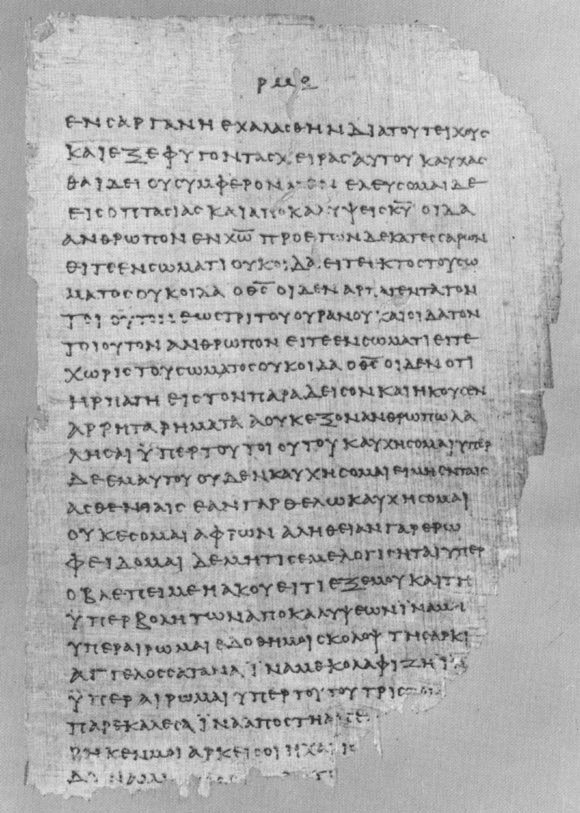 ρμθ
ΕΝΣΑΡΓΑΝΗΕΧΑΛΑΣΘΗΝΔΙΑΤΟΥΤΕΙΧΟΥΣ
ΚΑΙΕΞΕΦΥΓΟΝΤΑΣΧΕΙΡΑΣΑΥΤΟΥΚΑΥΧΑΣ
ΘΑΙΔΕΙΟΥΣΥΜΦΕΡΟΝ ΕΛΕΥΣΟΜΑΙΔΕ
ΕΙΣΟΠΤΑΣΙΑΣΚΑΙΑΠΟΚΑΛΥΨΕΙΣΚ̅Υ̅ΟΙΔΑ
ΑΝΘΡΩΠΟΝΕΝΧ̅Ω̅ΠΡΟΕΤΩΝΔΕΚΑΤΕΣΣΑΡΩΝ
ΕΙΤΕΕΝΣΩΜΑΤΙΟΥΚΟΙΔΑΕΙΤΕΙΚΤΟΣΤΟΥΣΩ
ΜΑΤΟΣΟΥΚΟΙΔΑΟΘ̅Σ̅ΟΙΔΕΝΑΡΠΑΓΕΝΤΑΤΟΝ
ΤΟΙΟΥΤΟΝΕΩΣΤΡΙΤΟΥΟΥΡΑΝΟΥΚΑΙΟΙΔΑΤΟΝ
ΤΟΙΟΥΤΟΝΑΝΘΡΩΠΟΝΕΙΤΕΕΝΣΩΜΑΤΙΕΙΤΕ
ΧΩΡΙΣΤΟΥΣΩΜΑΤΟΣΟΥΚΟΙΔΑΟΘ̅Σ̅ΟΙΔΕΝΟΤΙ
ΗΡΠΑΓΗΕΙΣΤΟΝΠΑΡΑΔΕΙΣΟΝΚΑΙΗΚΟΥΣΕΝ
ΑΡΡΗΤΑΡΗΜΑΤΑΑΟΥΚΕΞΟΝΑΝΘΡΩΠΩΛΑ
ΛΗΣΑΙΫΠΕΡΤΟΥΤΟΙΟΥΤΟΥΚΑΥΧΗΣΟΜΑΙΥΠΕΡ
ΔΕΕΜΑΥΤΟΥΟΥΔΕΝΚΑΥΧΗΣΟΜΑΙΕΙΜΗΕΝΤΑΙΣ
ΑΣΘΕΝΙΑΙΣΕΑΝΓΑΡΘΕΛΩΚΑΥΧΗΣΟΜΑΙ
ΟΥΚΕΣΟΜΑΙΑΦΡΩΝΑΛΗΘΕΙΑΝΓΑΡΕΡΩ
ΦΕΙΔΟΜΑΙΔΕΜΗΤΙΣΕΜΕΛΟΓΙΣΗΤΑΙΥΠΕΡ
ΟΒΛΕΠΕΙΜΕΗΑΚΟΥΕΙΤΙΕΞΕΜΟΥΚΑΙΤΗ
ΫΠΕΡΒΟΛΗΤΩΝΑΠΟΚΑΛΥΨΕΩΝΪΝΑΜΗ
ΥΠΕΡΑΙΡΩΜΑΙΕΔΟΘΗΜΟΙΣΚΟΛΟΨΤΗΣΑΡΚΙ
ΑΓΓΕΛΟΣΣΑΤΑΝΑΪΝΑΜΕΚΟΛΑΦΙΖΗΪ
ΫΠΕΡΑΙΡΩΜΑΙΥΠΕΡΤΟΥΤΟΥΤΡΙΣ
ΠΑΡΕΚΑΛΕΣΑΪΝΑΑΠΟΣΤΗΑΠΕ
ΡΗΚΕΝΜΑΙΑΡΚΕΙΣΟΙΗΧΑΡΙΣ